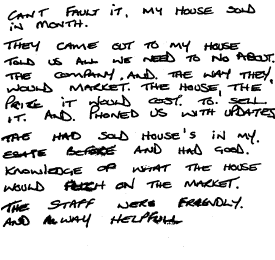 CAN'T FAULT IT, MY HOUSE SOLD
IN MONTH.
THEY CAME OUT TO MY HOUSE
TOLD US ALL WE NEED TO NO ABOUT.
THE COMPANY. AND. THE WAY THEY,
WOULD MARKET. THE HOUSE, THE
PRIZE IT WOULD COST. TO. SELL
IT. AND. PHONED US WITH UPDATES
THE HAD SOLD HOUSE'S IN MY.
ESATE BEFORE AND HAD GOOD.
KNOWLEDGE OF WHAT THE HOUSE
WOULD ON THE MARKET.
THE STAFF WERE FREINDLY.
AND ALWAY HELPFULL